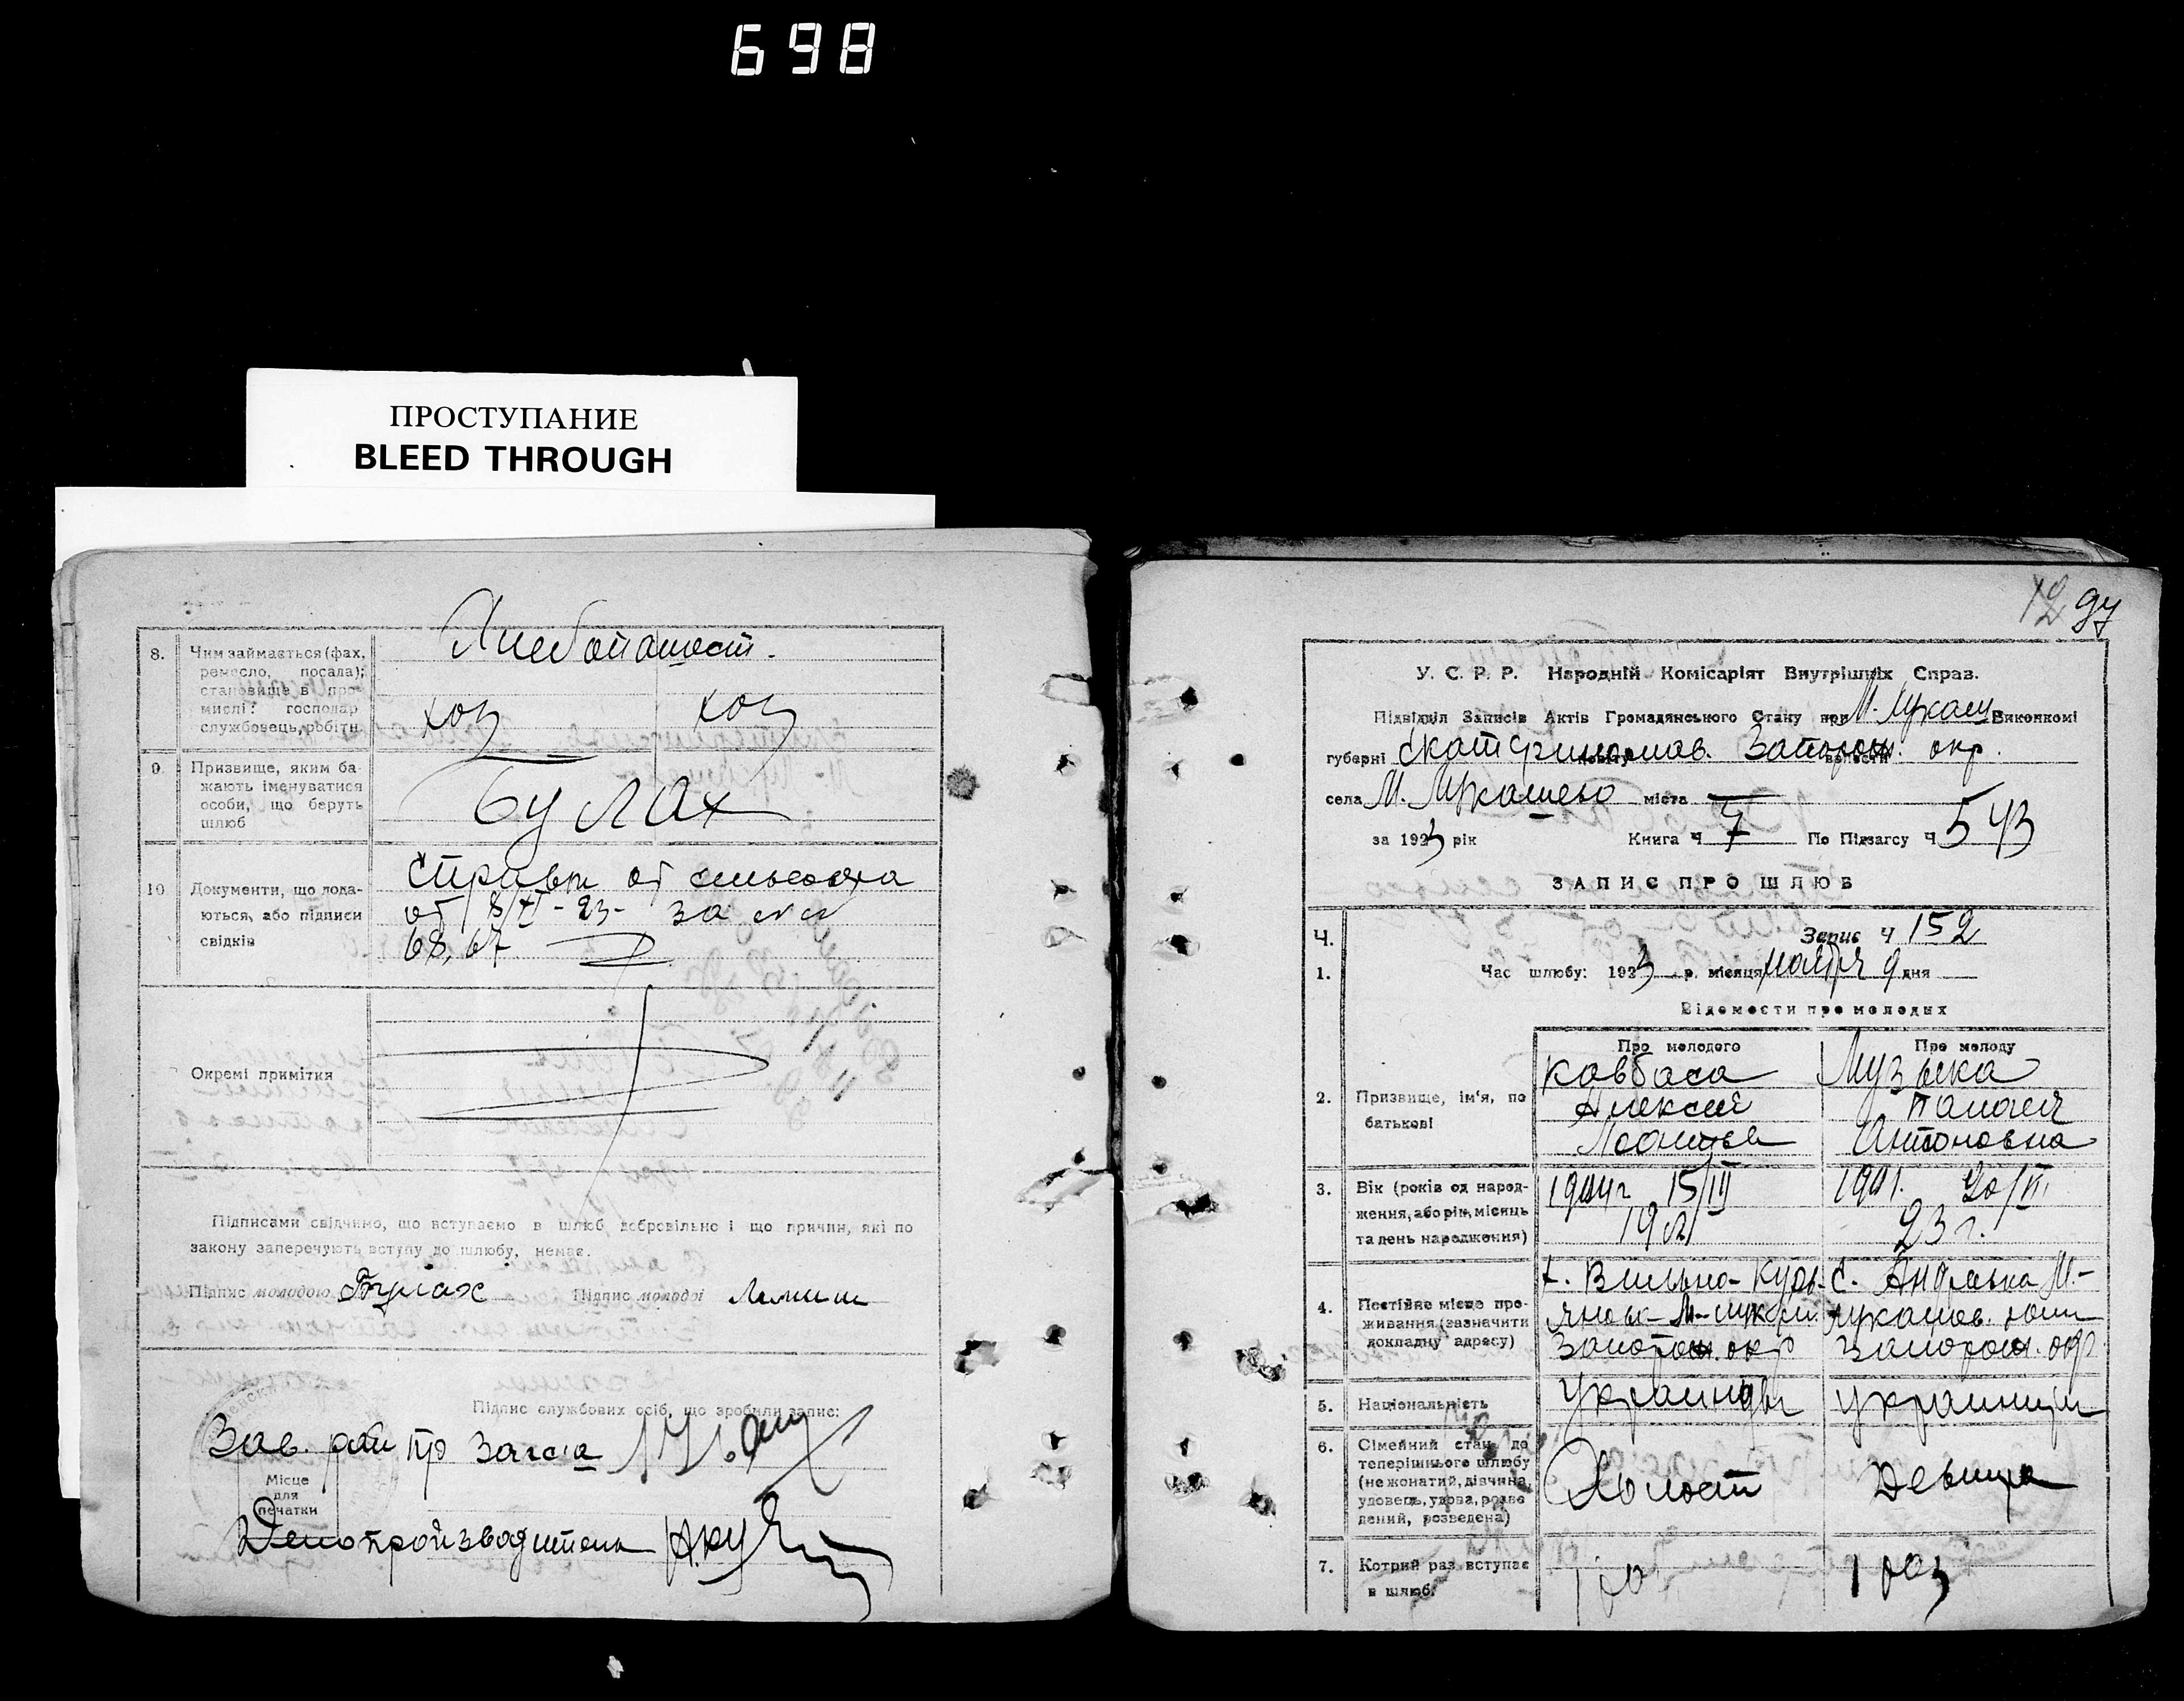 698
ПРОСТУПАНИЕ
BLEED THROUGH
8. Чим займається (фах,
ремесло, посада);
становище в про-
мислі: господар
службовець, робітн.
Хлебопашест.
хоз хоз
9. Призвище, яким ба-
жають іменуватися
особи, що беруть
шлюб
Булах
10. Документи, що пода-
ються, або підписи
свідків
Справки от сельсовета
от 8/XI-23- за
68, 67
Окремі примітки
Підписами свідчимо, що вступаємо в шлюб добровільно і що причин, які по
закону заперечують вступу до шлюбу, немає.
Підпис молодого Булах Підпис молодої
Підпис службових осіб, що зробили запис:
Зав. рай пр Загса
Місце
для
печатки
Делопроизводитель
12 97
У. С. Р. Р. Народній Комісаріят Внутрішніх Справ.
Підвідділ Записів Актів Громадянського Стану при М. Мукаш Виконкомі
губерні Екатеринослав. повіту Запорож. волости окр.
села М. Мукашево міста —
за 1923 рік Книга Ч 7 По Підзагсу Ч 543
ЗАПИС ПРО ШЛЮБ
Ч. Запис Ч 152
1. Час шлюбу: 1923 р. місяця ноября 9 дня
Відомости про молодых
Про молодого Про молоду
2. Призвище, ім'я, по
батькові
Ковбаса Музыка
Алексей
Антоновна
3. Вік (років од народ-
ження, або рік, місяць
та день народження)
1904 г 15/III 1901. 20/III
19 23 г.
4. Постійне місце про-
живання (зазначити
докладну адресу)
с. Вильно- с. Андревка М.-
Запорож. окр Запорож. окр.
5. Національність
Украинцы украинцы
6. Сімейний стан до
теперішнього шлюбу
(нежонатий, дівчина,
удовець, удова, розве
дений, розведена)
Холост Девица
7. Котрий раз вступає
в шлюб.
1 раз 1 раз